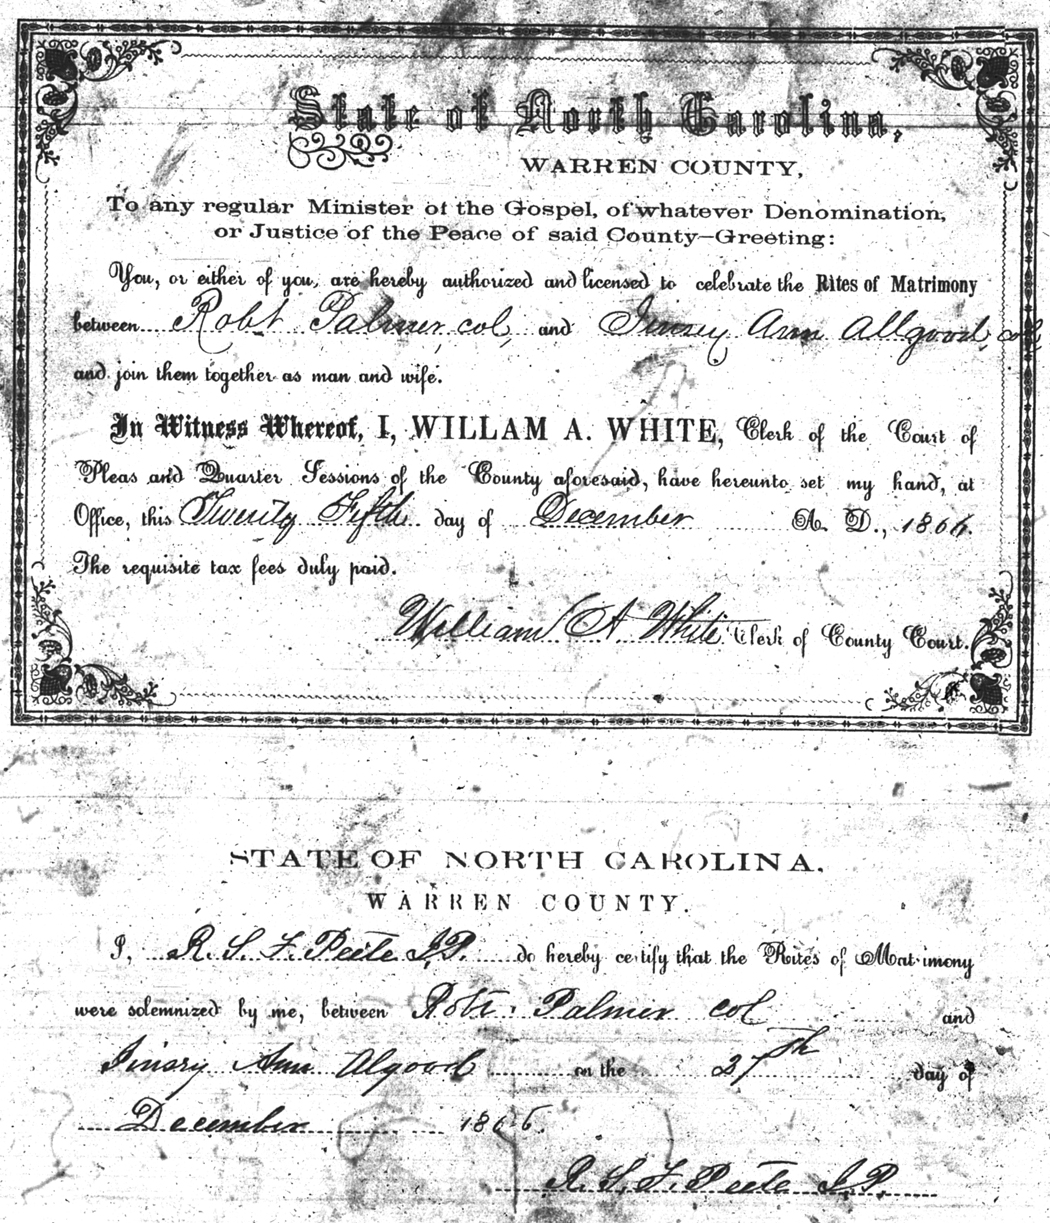 State of North Carolina,
WARREN COUNTY,
To any regular Minister of the Gospel, of whatever Denomination,
or Justice of the Peace of said County—Greeting:
You, or either of you, are hereby authorized and licensed to celebrate the Rites of Matrimony
between Robt Palmer, col, and Jinsey Ann Allgood, col
and join them together as man and wife.
In Witness Whereof, I, WILLAM A. WHITE, Clerk of the Court of
Pleas and Quarter Sessions of the County aforesaid, have hereunto set my hand, at
Office, this Twenty Fifth day of December A. D., 1866.
The requisite tax fees duly paid.
William A White Clerk of County Court.
STATE OF NORTH CAROLINA,
WARREN COUNTY.
I, R. S. F. Peete J.P. do hereby certify that the Rites of Matrimony
were solemnized by me, between Robt. Palmer col and
Jinsey Ann Algood on the 27th day of
December 1866.
R. S. F. Peete J.P.